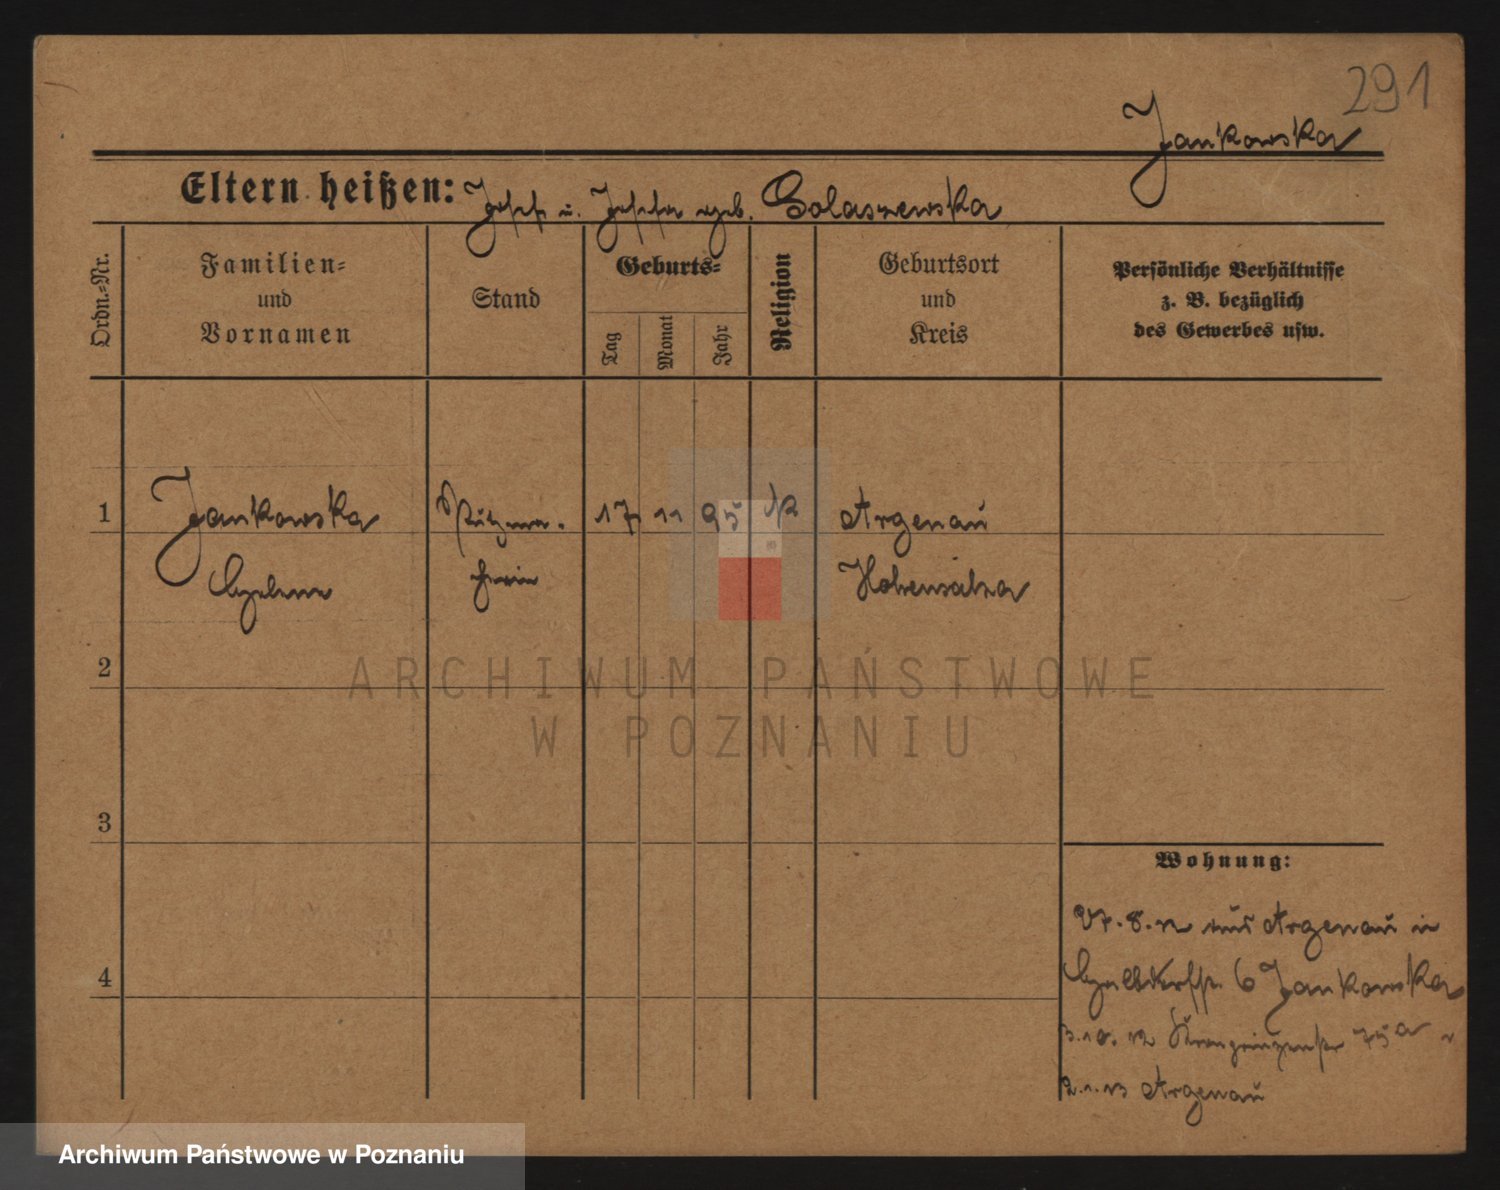 291
Jankowska
Eltern heißen: Josef u. Josefa geb. Golaszewska
Ordn.=Nr.
Familien=
und
Vornamen
Stand
Geburts=
Tag
Monat
Jahr
Religion
Geburtsort
und
Kreis
Persönliche Verhältnisse
z. B. bezüglich
des Gewerbes usw.
1
Jankowska
Putzma-
cherin
17 11 95 K
Argenau
Hohensalza
2
ARCHIWUM PAŃSTWOWE
W POZNANIU
3
Wohnung:
27.8.12 aus Argenau in
6 Jankowska
4
3.10.12 Kronprinzenstr 75a
2.1.13 Argenau
Archiwum Państwowe w Poznaniu